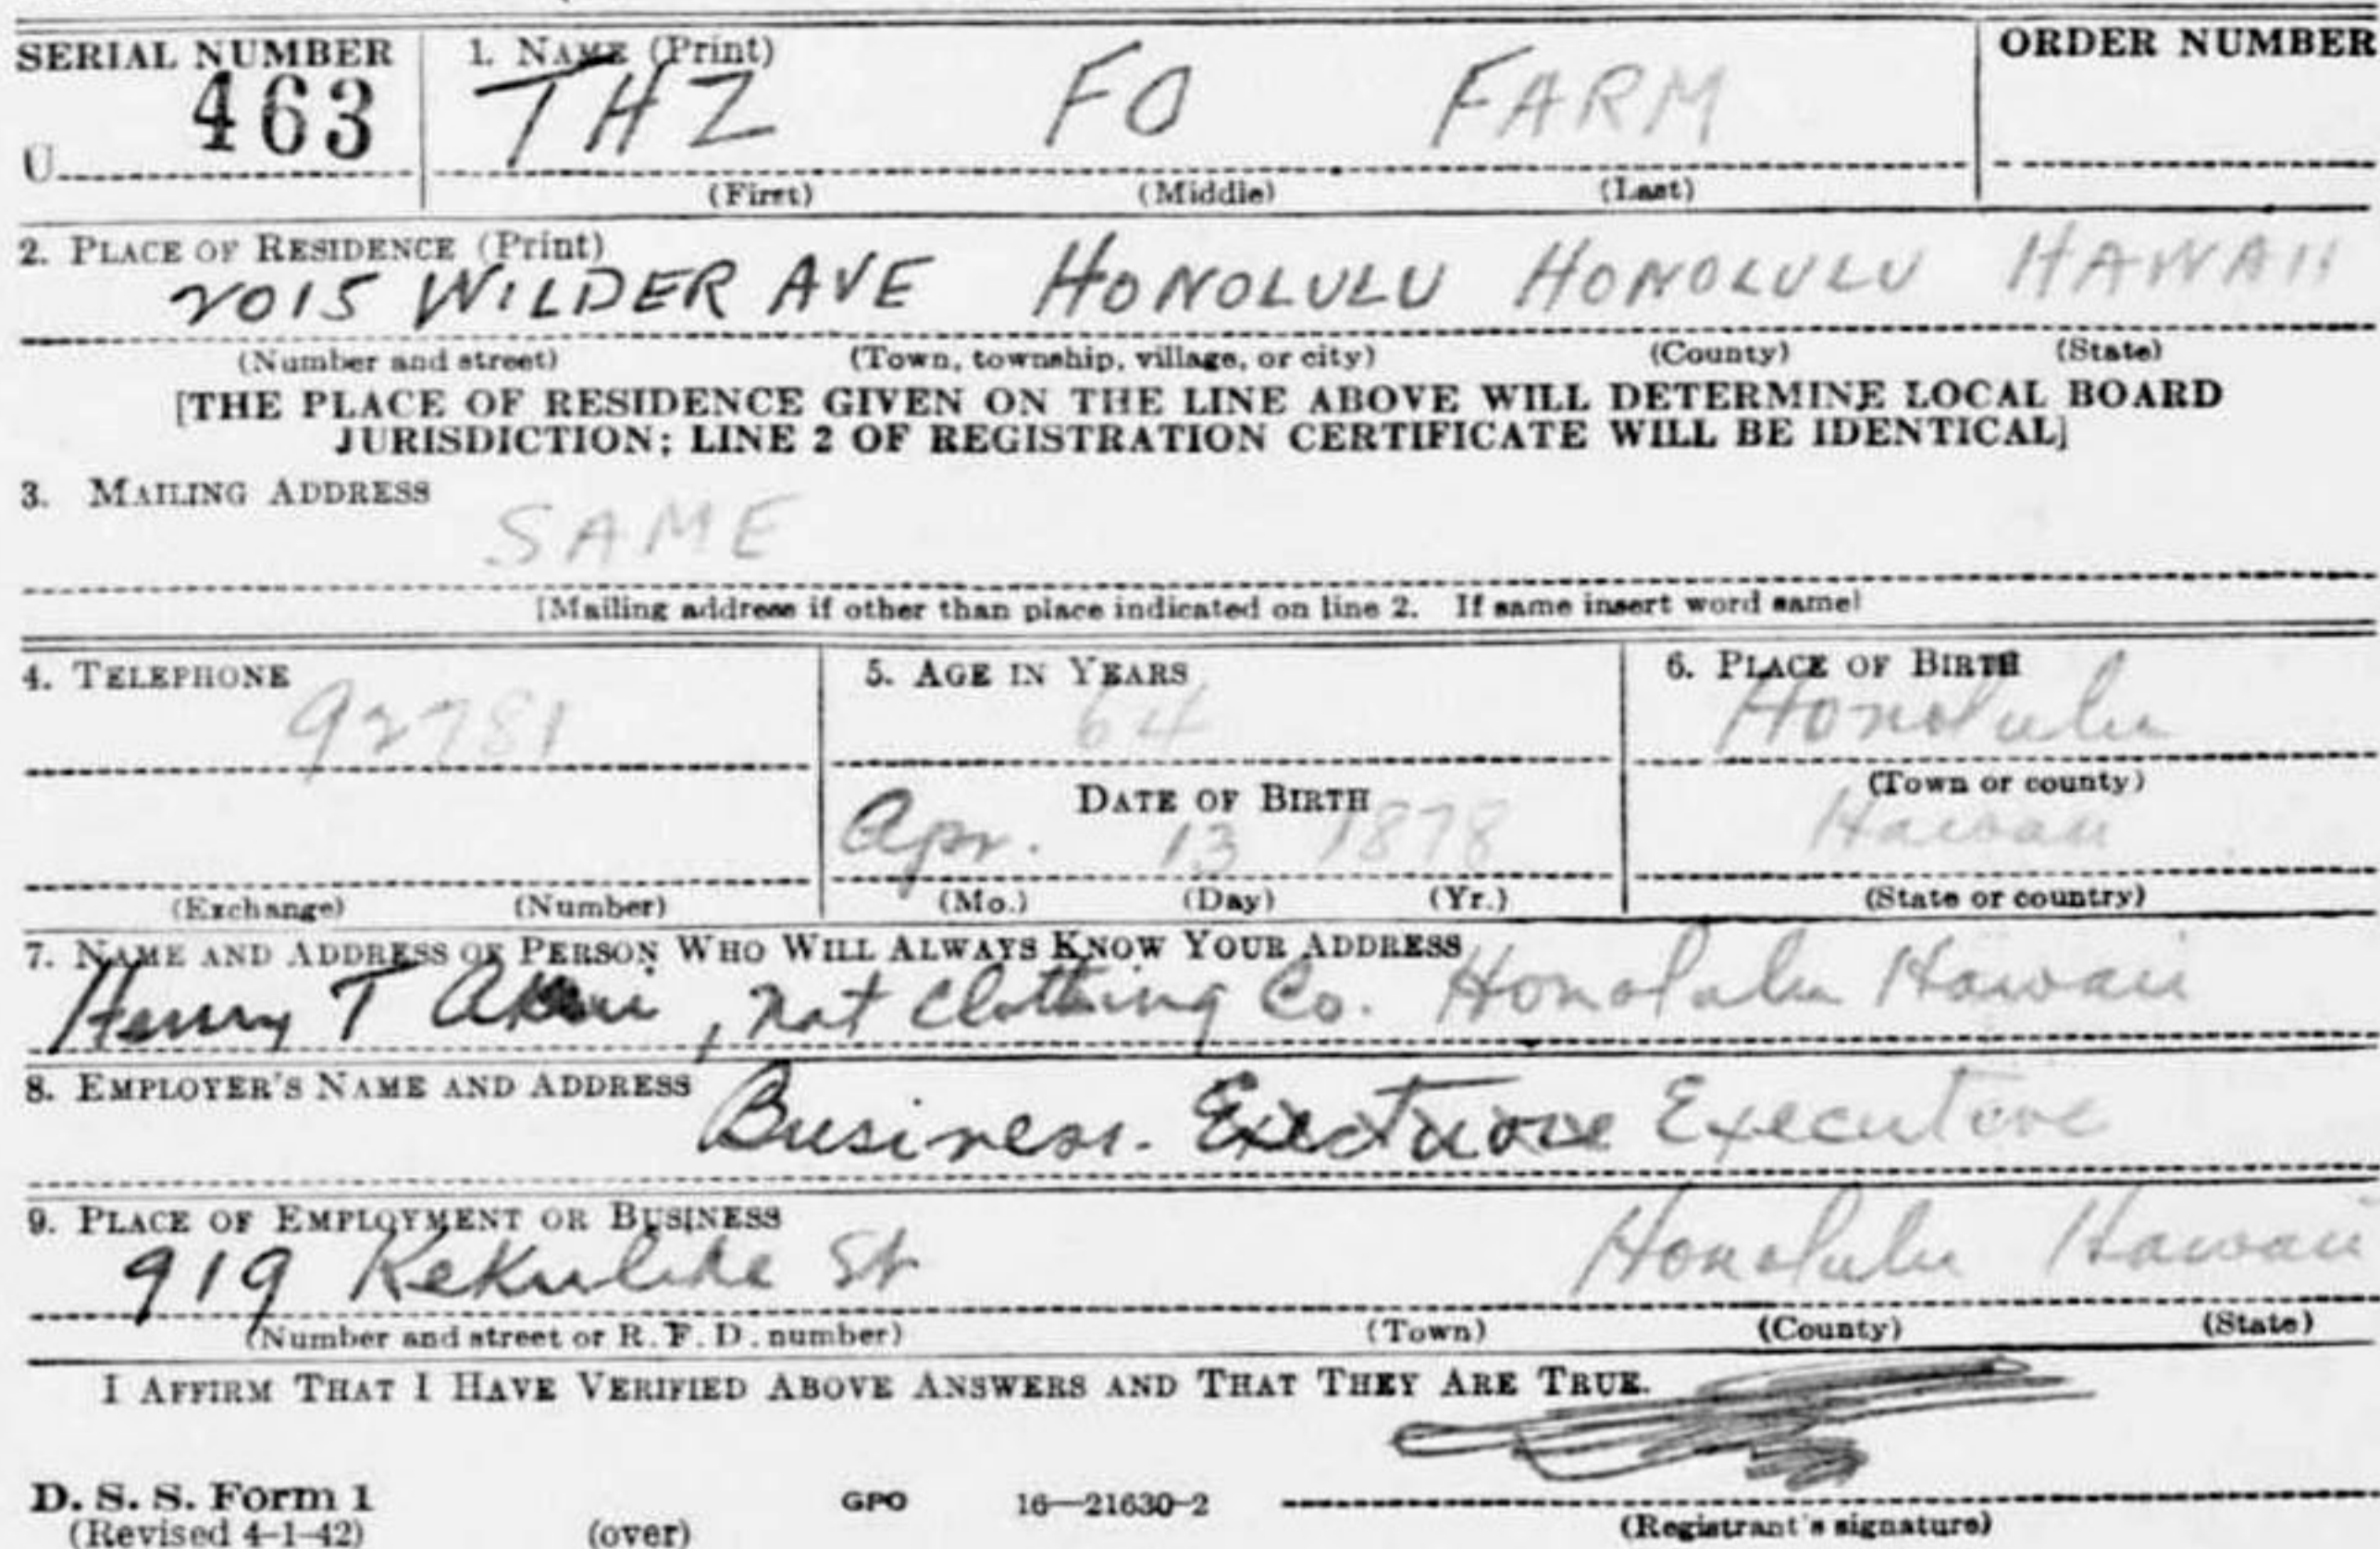 SERIAL NUMBER 1. NAME (Print) ORDER NUMBER
U 463 THZ FO FARM
(First) (Middle) (Last)
2. PLACE OF RESIDENCE (Print)
2015 WILDER AVE HONOLULU HONOLULU HAWAII
(Number and street) (Town, township, village, or city) (County) (State)
[THE PLACE OF RESIDENCE GIVEN ON THE LINE ABOVE WILL DETERMINE LOCAL BOARD
JURISDICTION; LINE 2 OF REGISTRATION CERTIFICATE WILL BE IDENTICAL]
3. MAILING ADDRESS
SAME
[Mailing address if other than place indicated on line 2. If same insert word same]
4. TELEPHONE 5. AGE IN YEARS 6. PLACE OF BIRTH
92781 64 Honolulu
(Town or county)
DATE OF BIRTH
Apr. 13 1878 Hawaii
(Exchange) (Number) (Mo.) (Day) (Yr.) (State or country)
7. NAME AND ADDRESS OF PERSON WHO WILL ALWAYS KNOW YOUR ADDRESS
Henry T , Nat Clothing Co. Honolulu Hawaii
8. EMPLOYER'S NAME AND ADDRESS
Business. Executive
9. PLACE OF EMPLOYMENT OR BUSINESS
919 Kekulike St Honolulu Hawaii
(Number and street or R. F. D. number) (Town) (County) (State)
I AFFIRM THAT I HAVE VERIFIED ABOVE ANSWERS AND THAT THEY ARE TRUE.
D. S. S. Form 1
(Revised 4-1-42) (over) GPO 16—21630-2 (Registrant's signature)